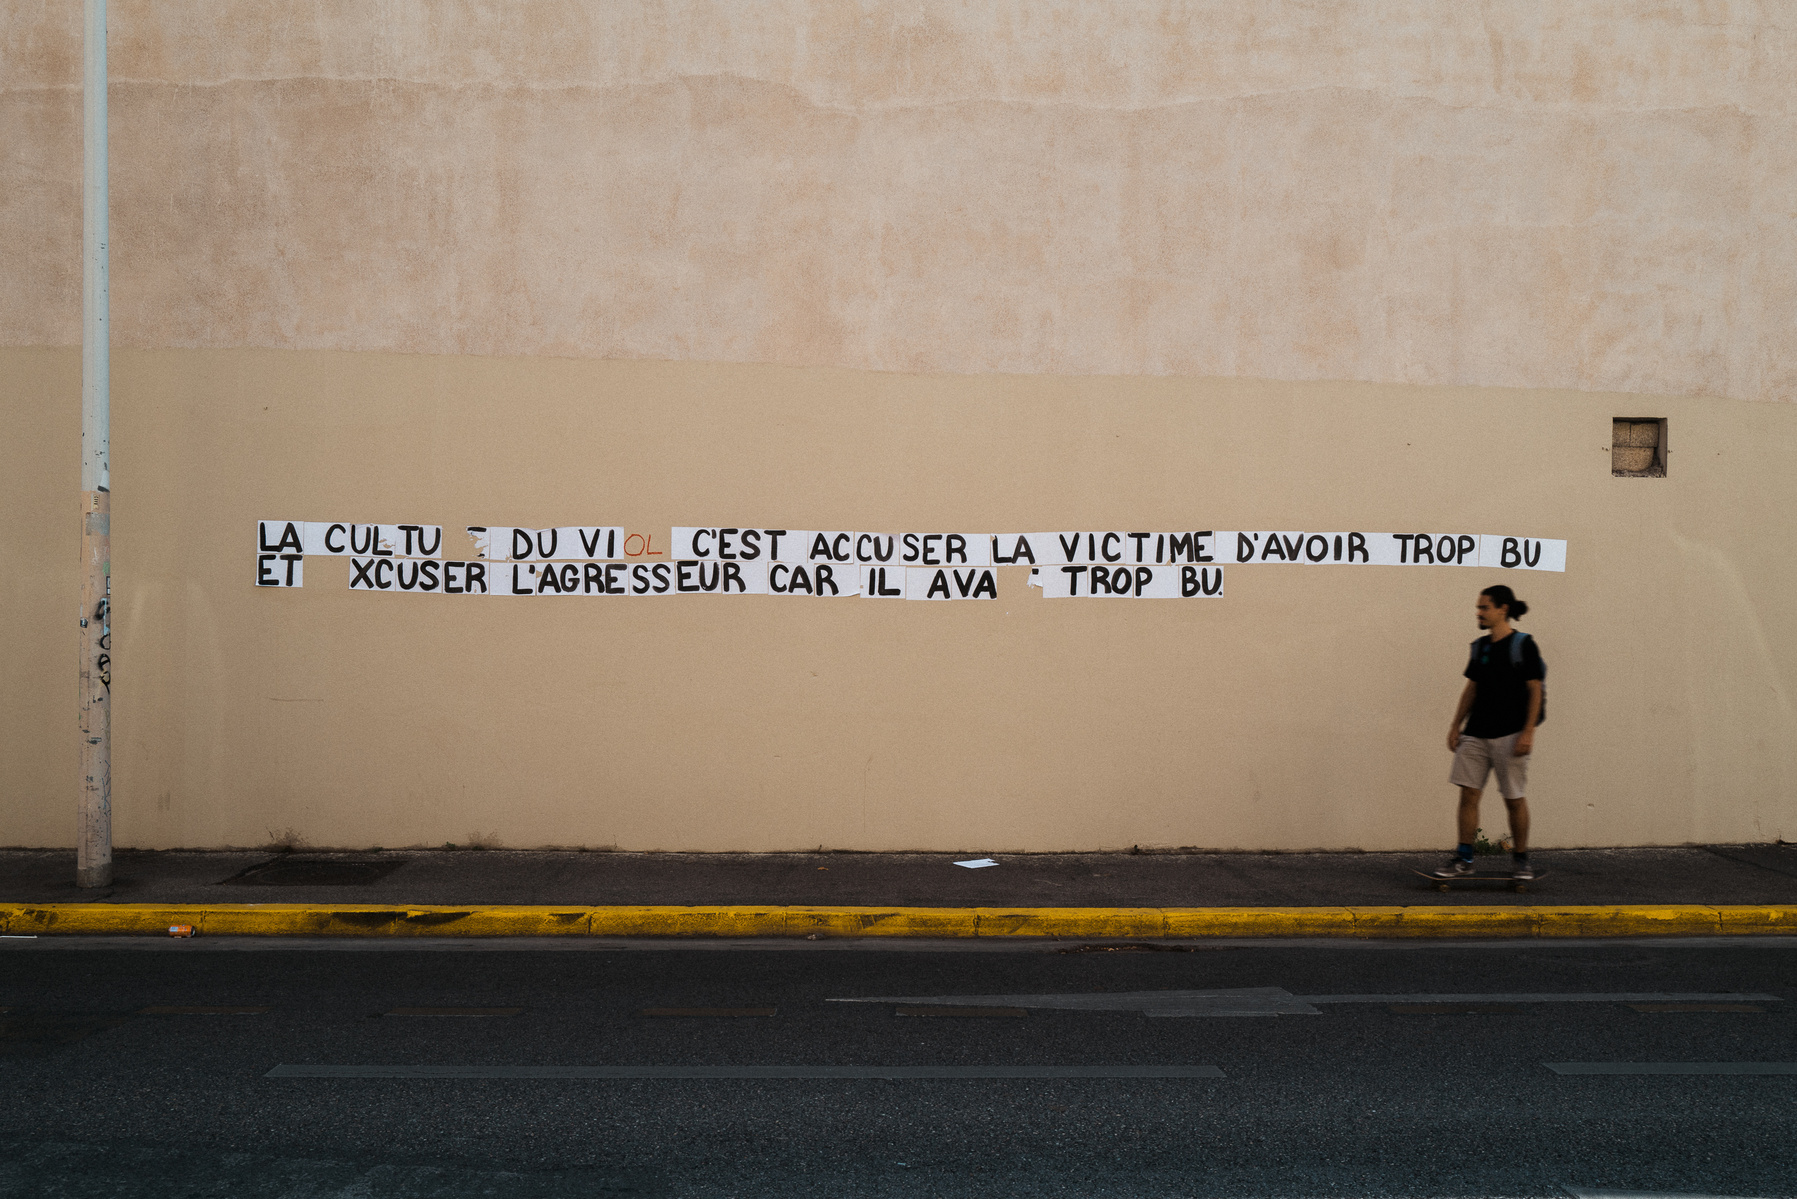 LA CULTU E DU VIOL C'EST ACCUSER LA VICTIME D'AVOIR TROP BU
ET XCUSER L'AGRESSEUR CAR IL AVA TROP BU.